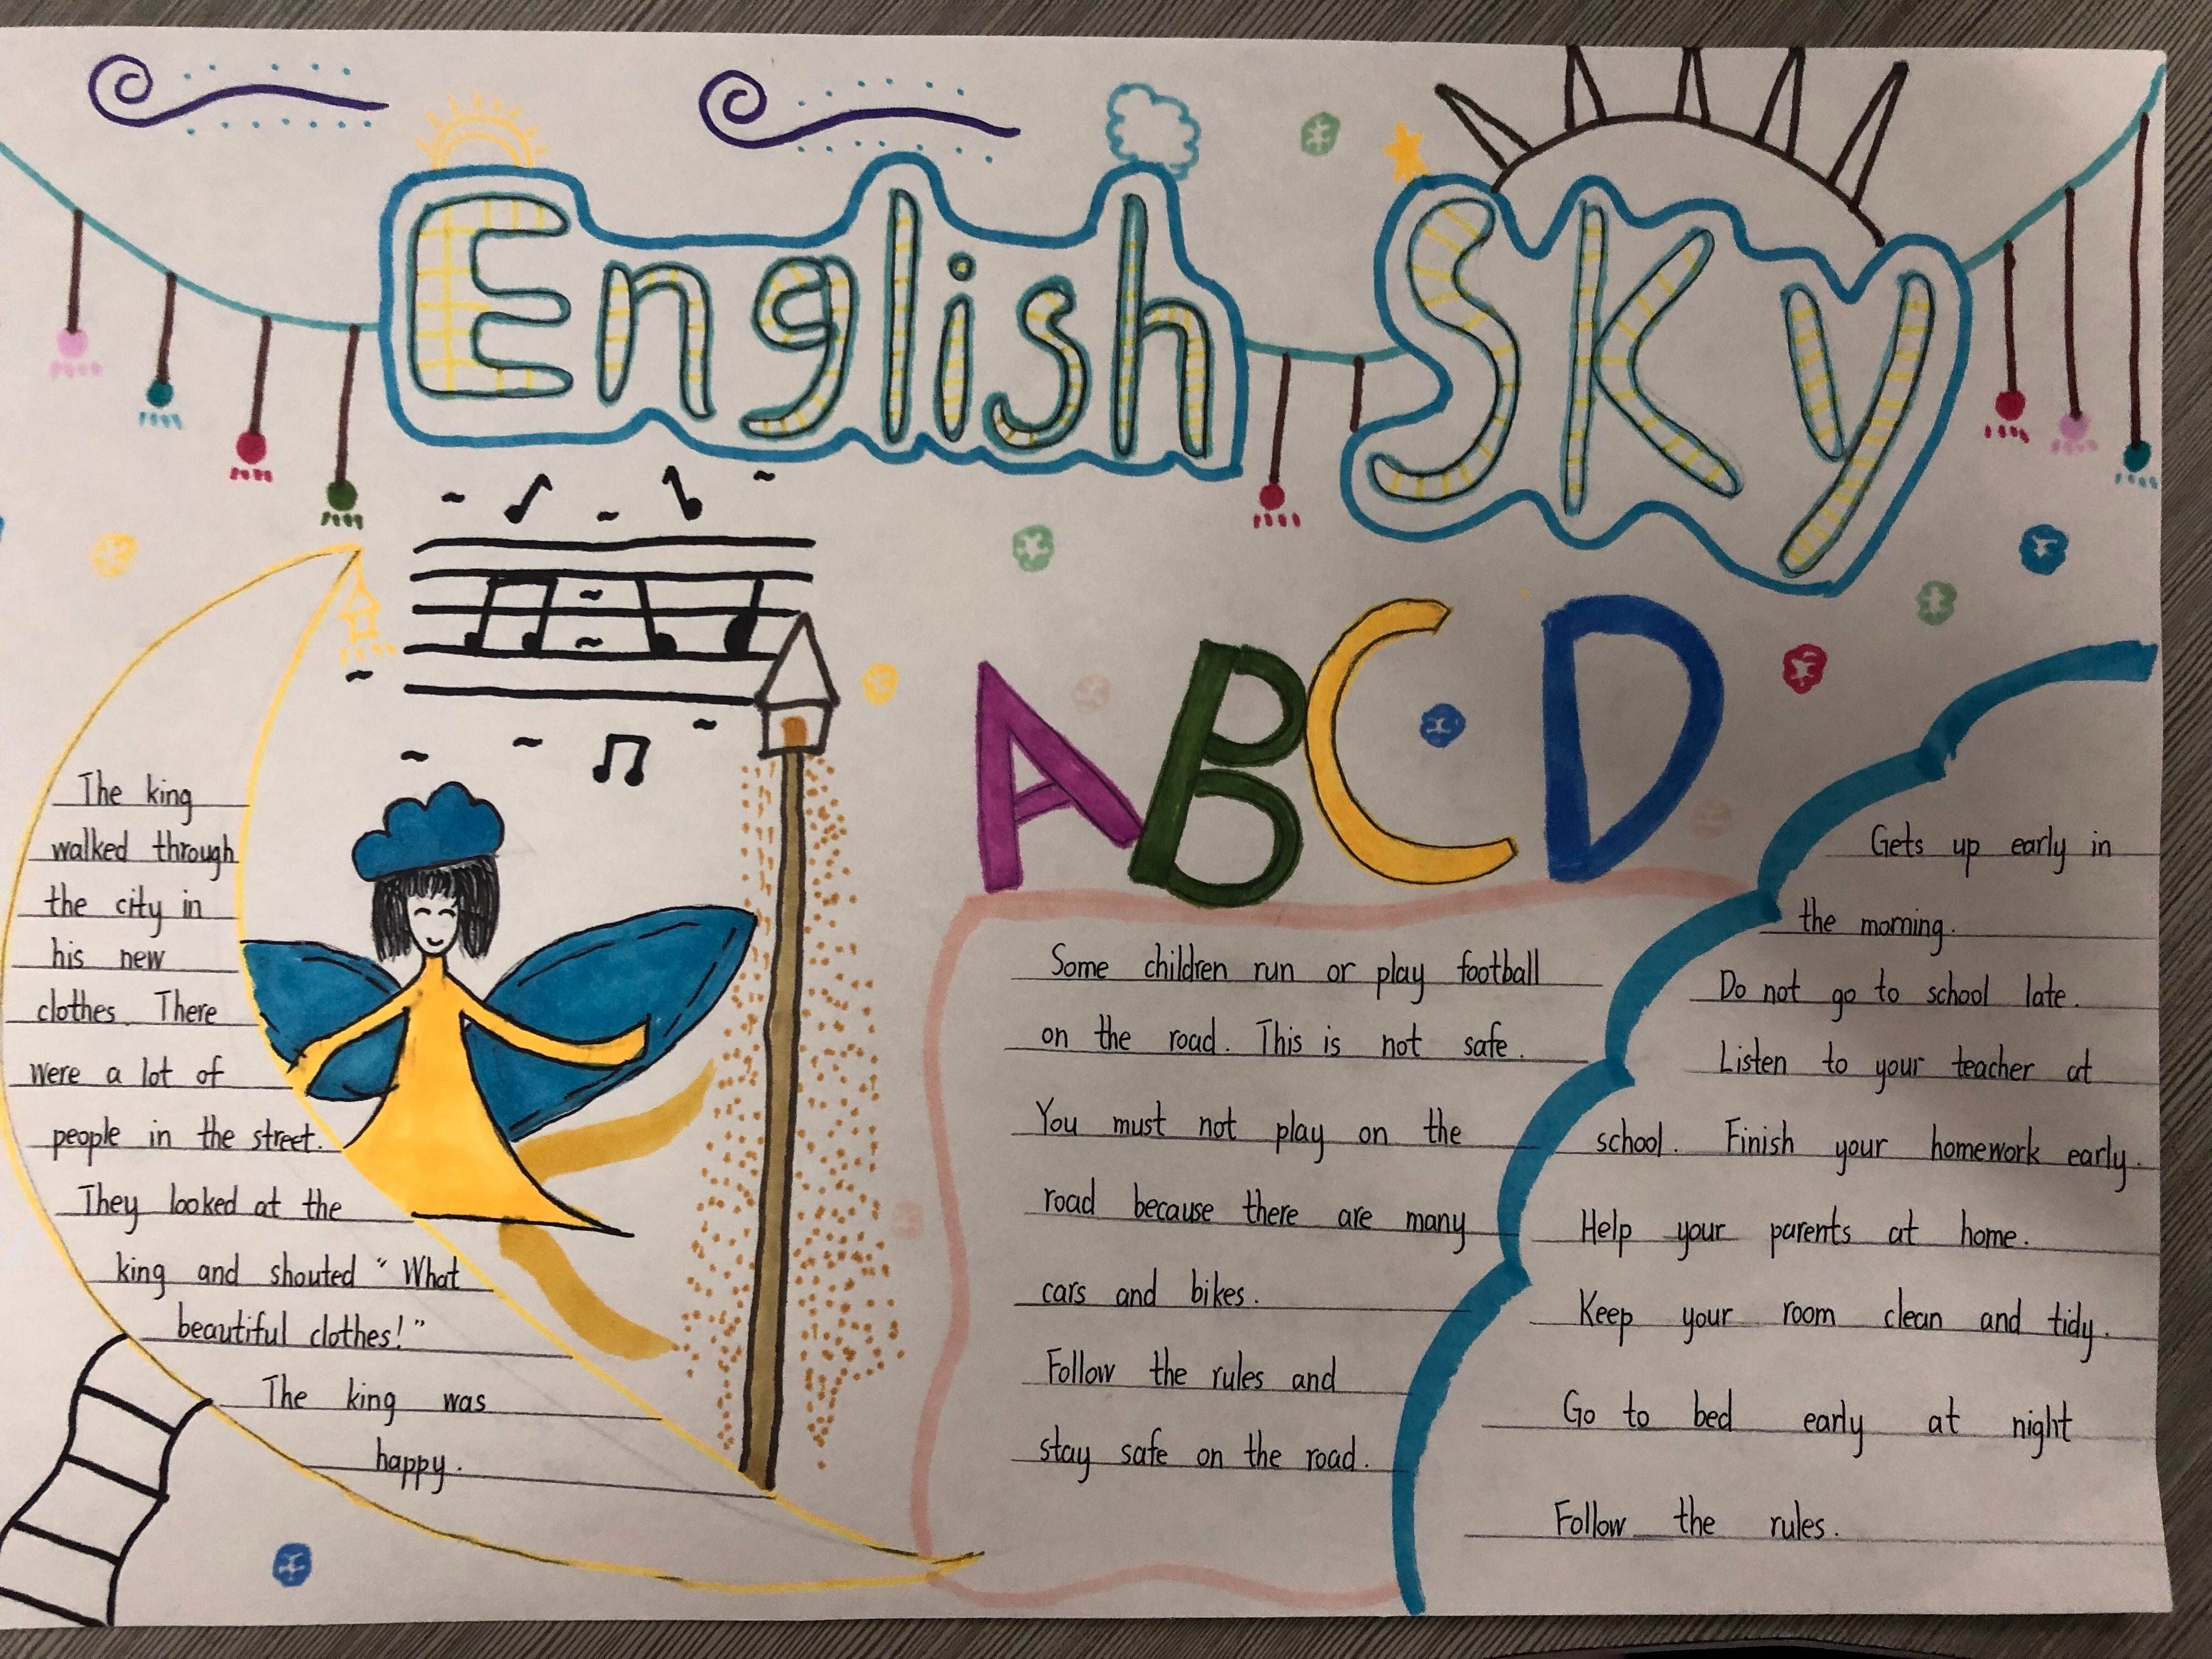 English Sky
ABCD
The king
walked through
the city in
his new
clothes. There
were a lot of
people in the street.
They looked at the
king and shouted "What
beautiful clothes!"
The king was
happy.
Some children run or play football
on the road. This is not safe.
You must not play on the
road because there are many
cars and bikes.
Follow the rules and
stay safe on the road.
Gets up early in
the morning.
Do not go to school late.
Listen to your teacher at
school. Finish your homework early.
Help your parents at home.
Keep your room clean and tidy.
Go to bed early at night
Follow the rules.